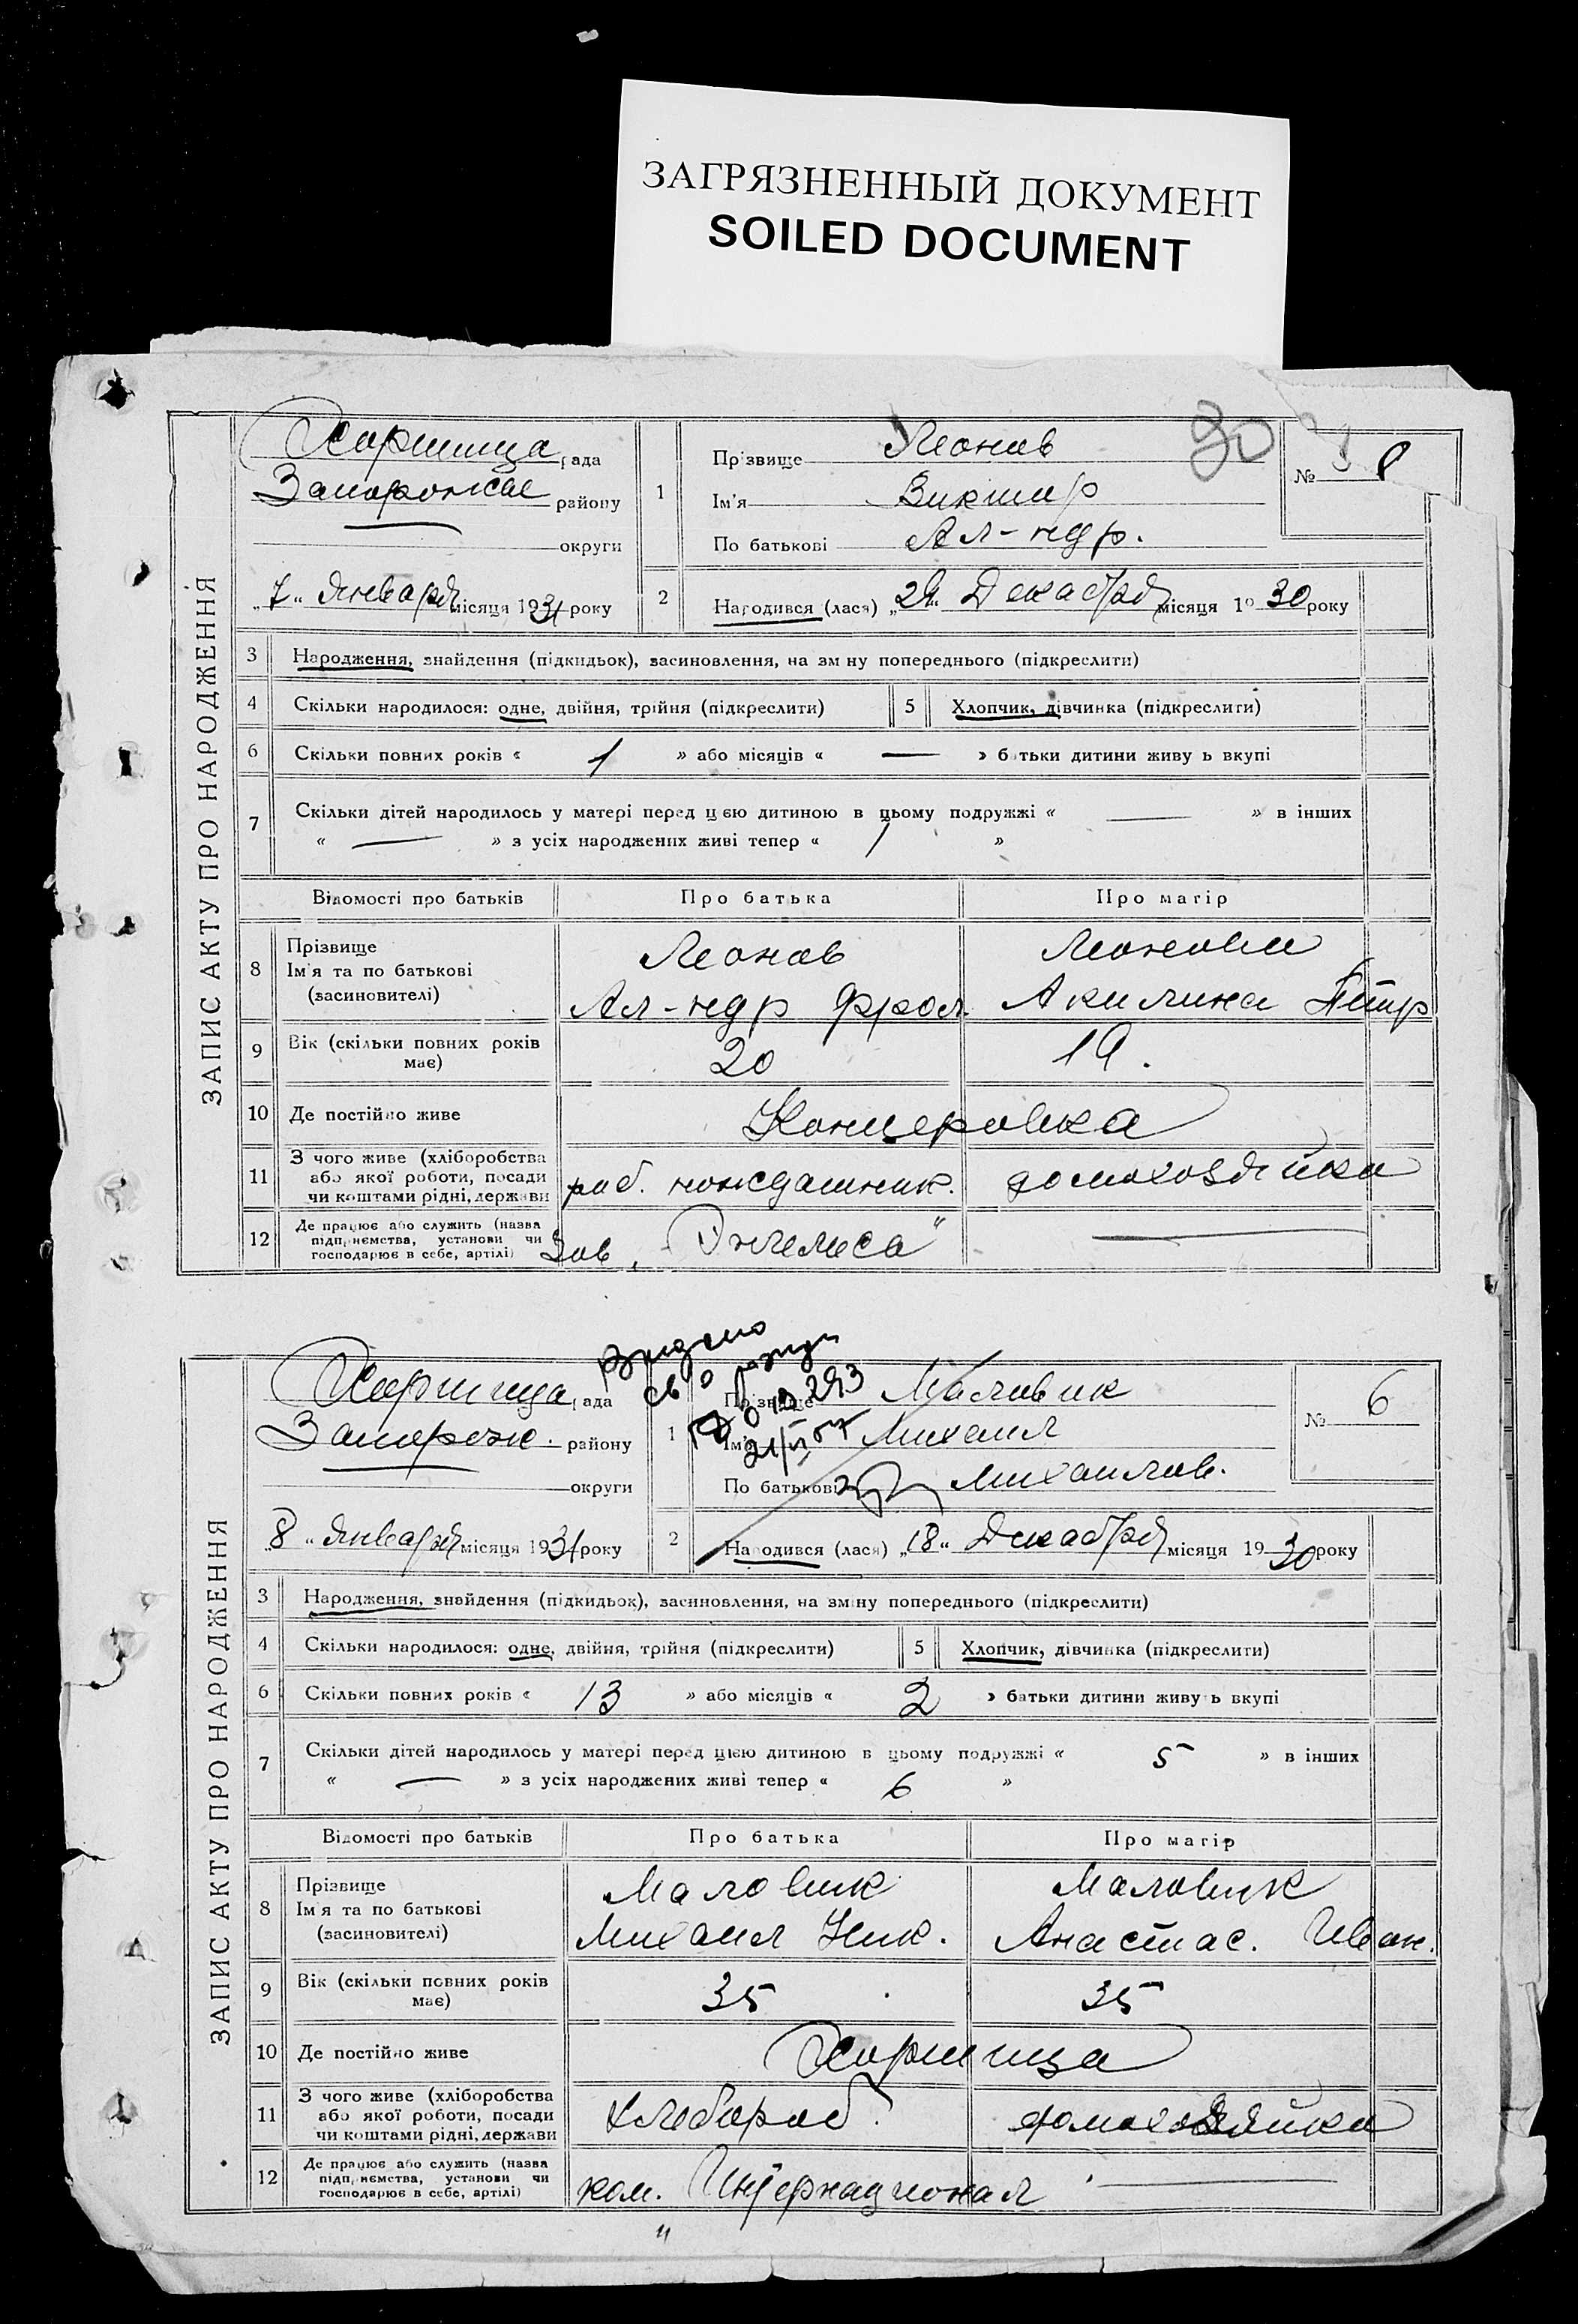 ЗАГРЯЗНЕННЫЙ ДОКУМЕНТ
SOILED DOCUMENT
ЗАПИС АКТУ ПРО НАРОДЖЕННЯ
Хортица рада
Запорожье району
округи
„7" Января місяця 1931 року
1
Прізвище Леонов
Ім'я Виктор
По батькові Ал-ндр.
30
№
2
Народився (лася) „29" Декабря місяця 1930 року
3 Народження, знайдення (підкидьок), засиновлення, на зміну попереднього (підкреслити)
4 Скільки народилося: одне, двійня, трійня (підкреслити) 5 Хлопчик, дівчинка (підкреслити)
6 Скільки повних років « 1 » або місяців « — » батьки дитини живуть вкупі
7 Скільки дітей народилось у матері перед цією дитиною в цьому подружжі « — » в інших
« — » з усіх народжених живі тепер « 1 »
Відомості про батьків Про батька Про матір
8 Прізвище
Ім'я та по батькові
(засиновителі)
Леонов Леонова
Ал-ндр Фрол. Акилина Петр
9 Вік (скільки повних років має) 20 19.
10 Де постійно живе Канцеровка
11 З чого живе (хліборобства
або якої роботи, посади
чи коштами рідні, держави
раб. домохозяйка
12 Де працює або служить (назва
підприємства, установи чи
господарює в себе, артілі)
Зав. „Энгельса" —
ЗАПИС АКТУ ПРО НАРОДЖЕННЯ
Хортица рада
Запорож. району
округи
„8" Января місяця 1931 року
1
Прізвище Маловик
Ім'я Михаил
По батькові Михаилов.
№ 6
2
Народився (лася) „18" Декабря місяця 1930 року
3 Народження, знайдення (підкидьок), засиновлення, на зміну попереднього (підкреслити)
4 Скільки народилося: одне, двійня, трійня (підкреслити) 5 Хлопчик, дівчинка (підкреслити)
6 Скільки повних років « 13 » або місяців « 2 » батьки дитини живуть вкупі
7 Скільки дітей народилось у матері перед цією дитиною в цьому подружжі « 5 » в інших
« — » з усіх народжених живі тепер « 6 »
Відомості про батьків Про батька Про матір
8 Прізвище
Ім'я та по батькові
(засиновителі)
Маловик Маловик
Михаил Ник. Анастас. Иван.
9 Вік (скільки повних років має) 35 35
10 Де постійно живе Хортица
11 З чого живе (хліборобства
або якої роботи, посади
чи коштами рідні, держави
хлебороб. домохозяйка
12 Де працює або служить (назва
підприємства, установи чи
господарює в себе, артілі)
ком. Интернационал —